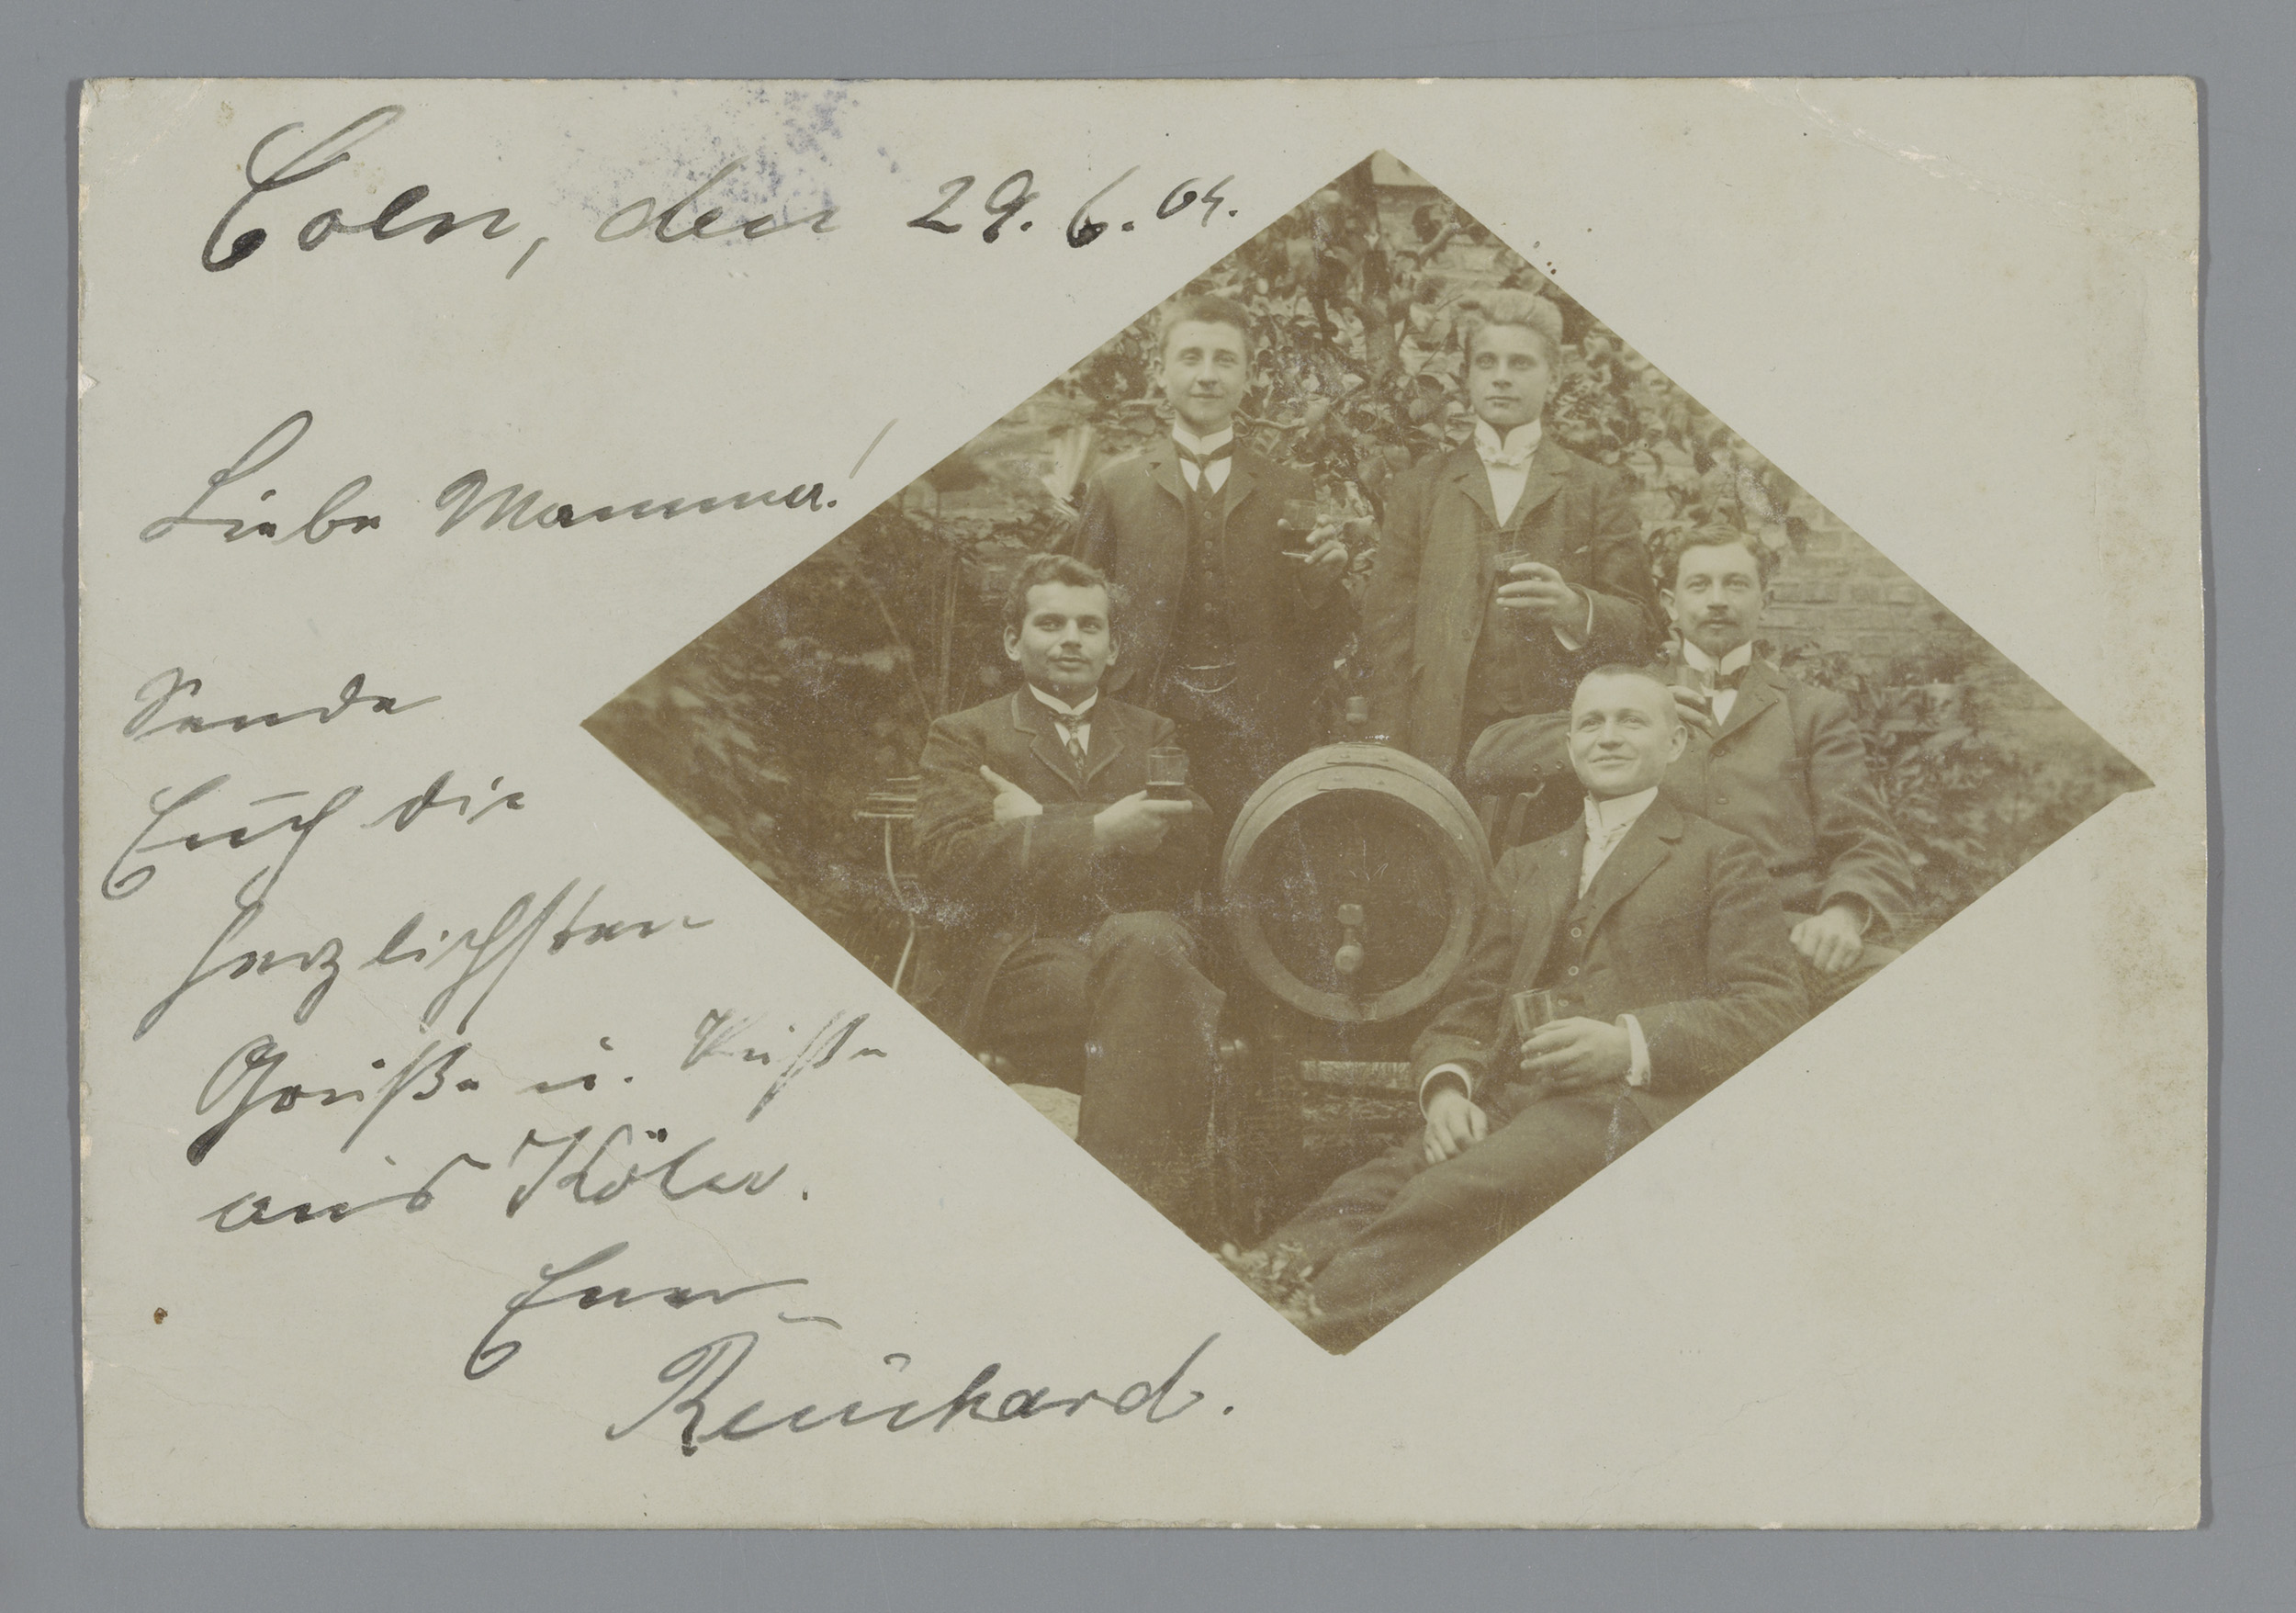 Coeln, den 29. 6. 04.
Liebe Mamma!
Sende
Euch die
herzlichsten
Grüße u. Küße
aus Köln.
Euer
Reinhard.